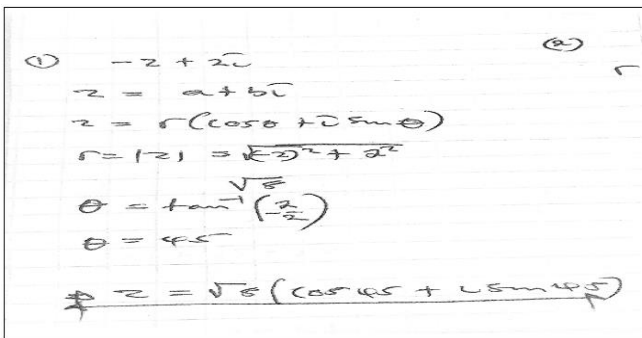 ① -2 + 2i
②
r
z = a+bi
z = r(cosθ + i sinθ)
r = |z| = √(-2)² + 2²
√8
θ = tan⁻¹(2/-2)
θ = 45
z = √8 (cos 45 + i sin 45)